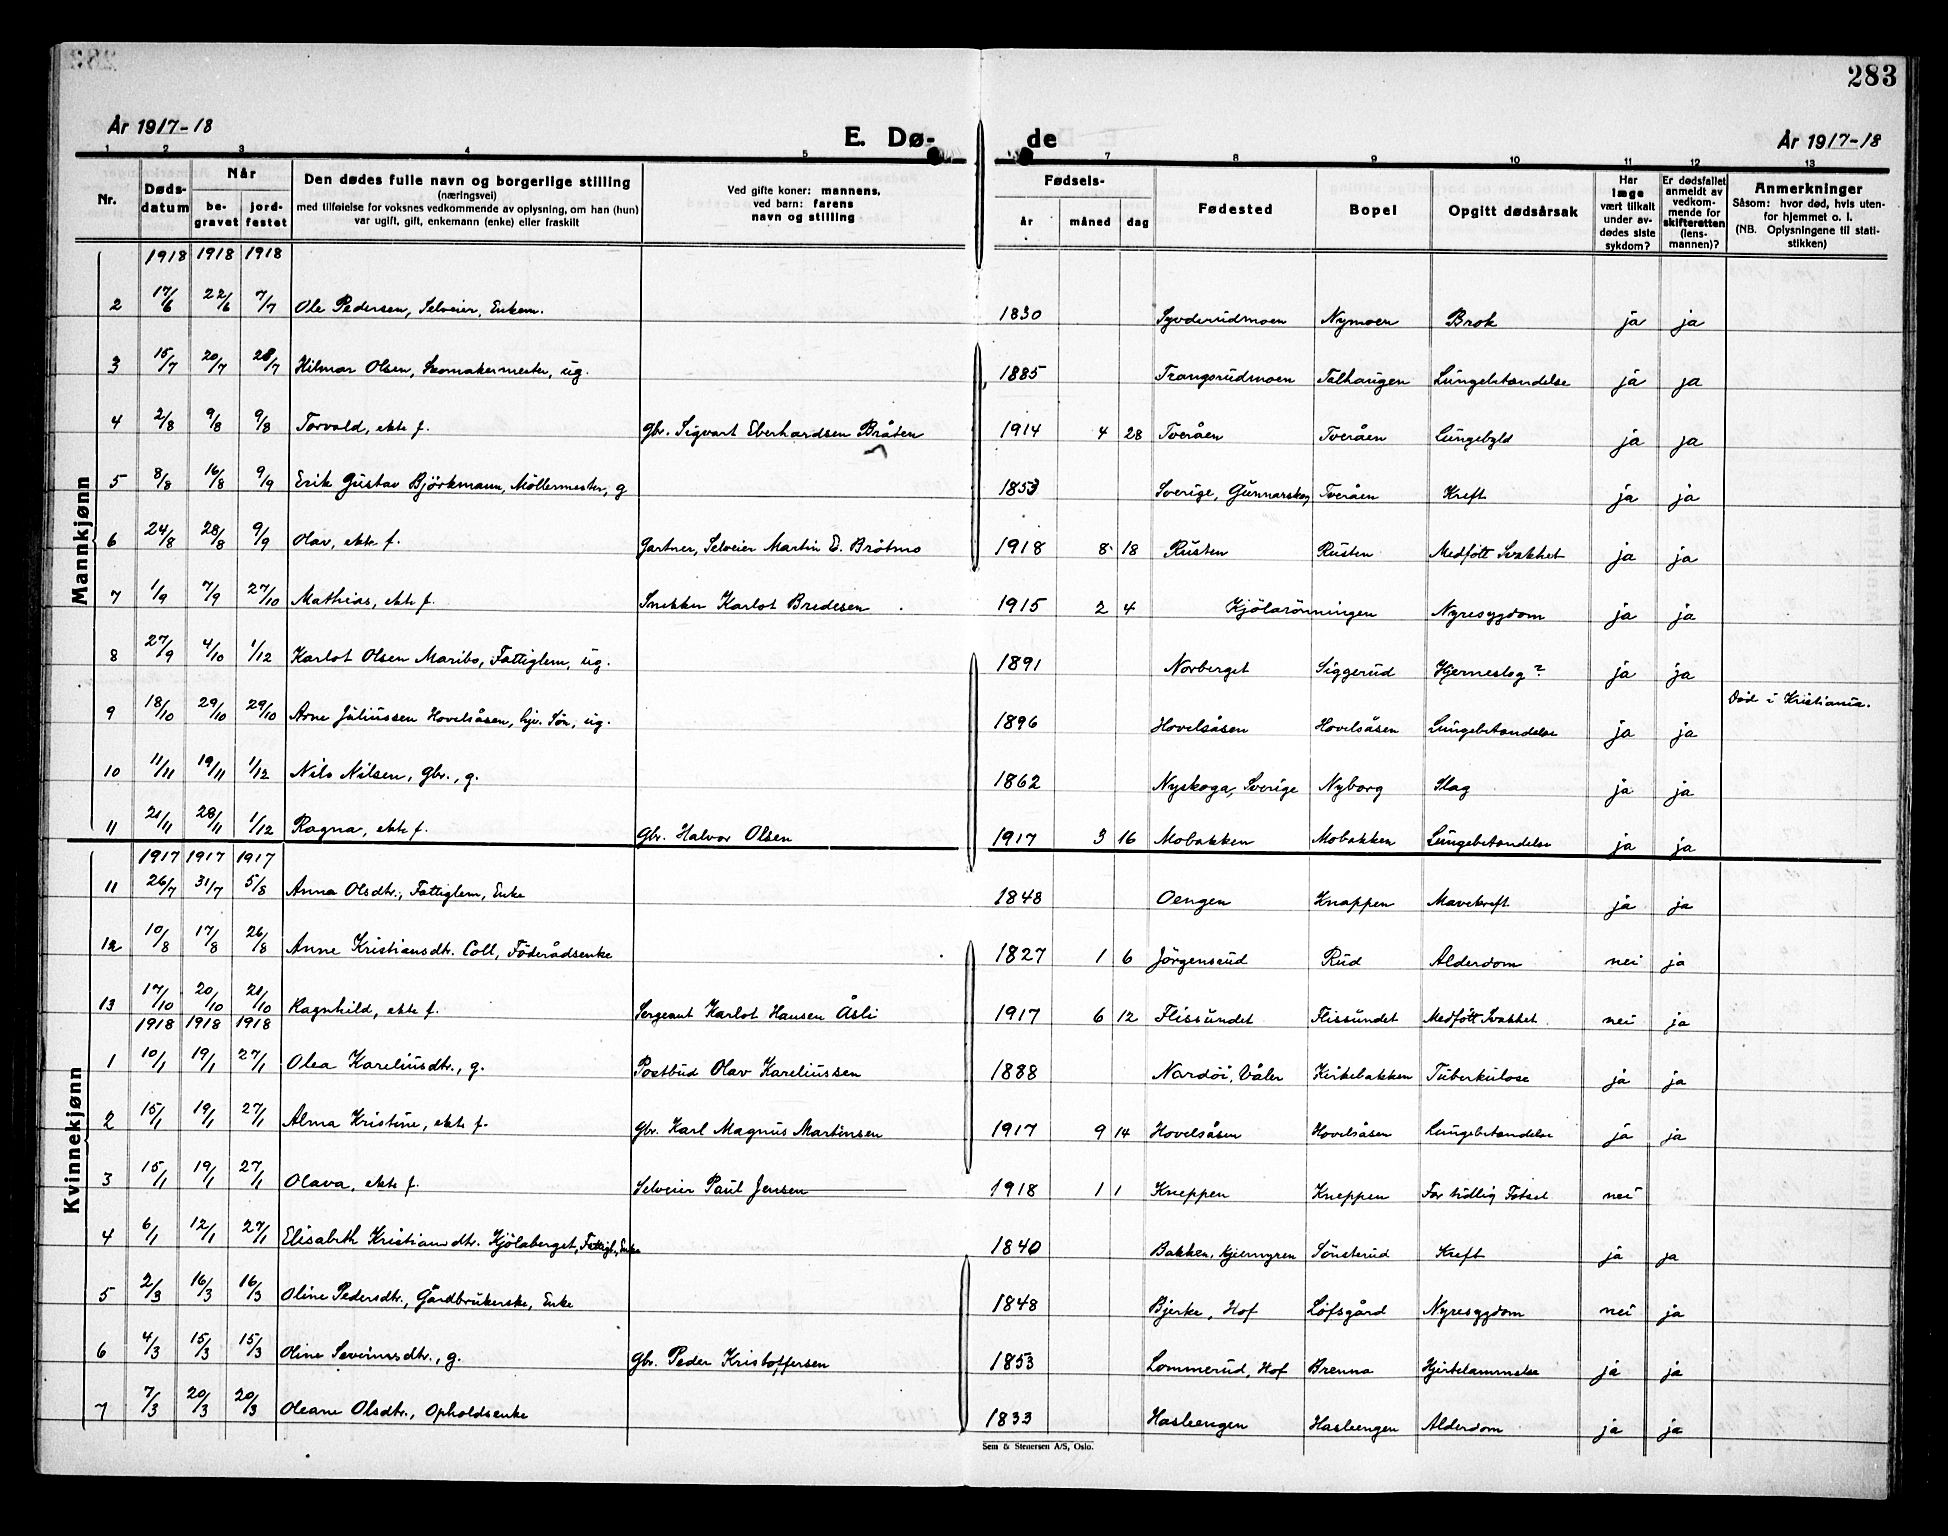 283
År 1917-18
E. Dø-
de
År 1917-18
1 2 3 4 5 7 8 9 10 11 12 13
Nr.
Døds-
datum
Når
be-
gravet
jord-
festet
Den dødes fulle navn og borgerlige stilling
(næringsvei)
med tilføielse for voksnes vedkommende av oplysning, om han (hun)
var ugift, gift, enkemann (enke) eller fraskilt
Ved gifte koner: mannens,
ved barn: farens
navn og stilling
Fødsels-
år måned dag
Fødested
Bopel
Opgitt dødsårsak
Har
læge
vært tilkalt
under av-
dødes siste
sykdom?
Er dødsfallet
anmeldt av
vedkom-
mende for
skifteretten
(lens-
mannen)?
Anmerkninger
Såsom: hvor død, hvis uten-
for hjemmet o. l.
(NB. Oplysningene til stati-
stikken)
Mannkjønn
1918 1918 1918
2 17/6 22/6 7/7 Ole Pedersen, Selveier, Enkem. 1830 Syvderudmoen Nymoen Brok ja ja
3 15/7 20/7 28/7 Hilmar Olsen, Skomakermester, ug. 1885 Trangsrudmoen Talhaugen Lungebetændelse ja ja
4 2/8 9/8 9/8 Torvald, ekte f. Gbr. Sigvart Eberhardsen Bråten 1914 4 28 Tveråen Tveråen Lungebyld ja ja
5 8/8 16/8 9/9 Erik Gustav Björkmann, Møllermester, g 1853 Sverige, Gunnarskog Tveråen Kreft ja ja
6 24/8 28/8 9/9 Olav, ekte f. Gartner, Selveier Martin E. Bråtmo 1918 8 18 Rusten Rusten Medfött Svakhet ja ja
7 1/9 7/9 27/10 Mathias, ekte f. Snekker Karlot Bredesen 1915 2 4 Kjölarönningen Nyresygdom ja ja
8 27/9 4/10 1/12 Karlot Olsen Maribo, Fattiglem, ug. 1891 Norberget Siggerud Hjerneslag? ja ja
9 18/10 29/10 29/10 Arne Juliussen Hovelsåsen, hjv. Sön, ug. 1896 Hovelsåsen Hovelsåsen Lungebetændelse ja ja Död i Kristiania.
10 11/11 19/11 1/12 Nils Nilsen, Gbr., g. 1862 Nyskoga, Sverige Nyborg Slag ja ja
11 21/11 28/11 1/12 Ragna, ekte f. Gbr. Halvor Olsen 1917 3 16 Mobakken Mobakken Lungebetændelse ja ja
Kvinnekjønn
1917 1917 1917
11 26/7 31/7 5/8 Anna Olsdtr., Fattiglem, Enke 1848 Oengen Knappen Mavekreft ja ja
12 10/8 17/8 26/8 Anne Kristiansdtr. Coll, Föderådsenke 1827 1 6 Jörgensrud Rud Alderdom nei ja
13 17/10 20/10 21/10 Ragnhild, ekte f. Sergeant Karlot Hansen Åsli 1917 6 12 Flissundet Flissundet Medfött Svakhet nei ja
1918 1918 1918
1 10/1 19/1 27/1 Olea Kareliusdtr., g. Postbud Olav Kareliussen 1888 Nordöi, Våler Kirkebakken Tuberkulose ja ja
2 15/1 19/1 27/1 Alma Kristine, ekte f. Gbr. Karl Magnus Martinsen 1917 9 14 Hovelsåsen Hovelsåsen Lungebetændelse ja ja
3 15/1 19/1 27/1 Olava, ekte f. Selveier Paul Jensen 1918 1 1 Kneppen Kneppen For tidlig Fötsel nei
4 6/1 12/1 27/1 Elisabeth Kristiansdtr. Kjölaberget, Fattigl., Enke 1840 Bakken, Kjermyren Sönsterud Kreft ja ja
5 2/3 16/3 16/3 Oline Pedersdtr., Gårdbrukerske, Enke 1848 Bjerke, Hof Löfsgård Nyresygdom nei ja
6 4/3 15/3 15/3 Oline Severinsdtr., g. Gbr. Peder Kristoffersen 1853 Lommerud, Hof Brenna Hjertelammelse ja ja
7 7/3 20/3 20/3 Oleane Olsdtr., Opholdsenke 1833 Hasleengen Hasleengen Alderdom ja ja
Sem & Stenersen A/S, Oslo.